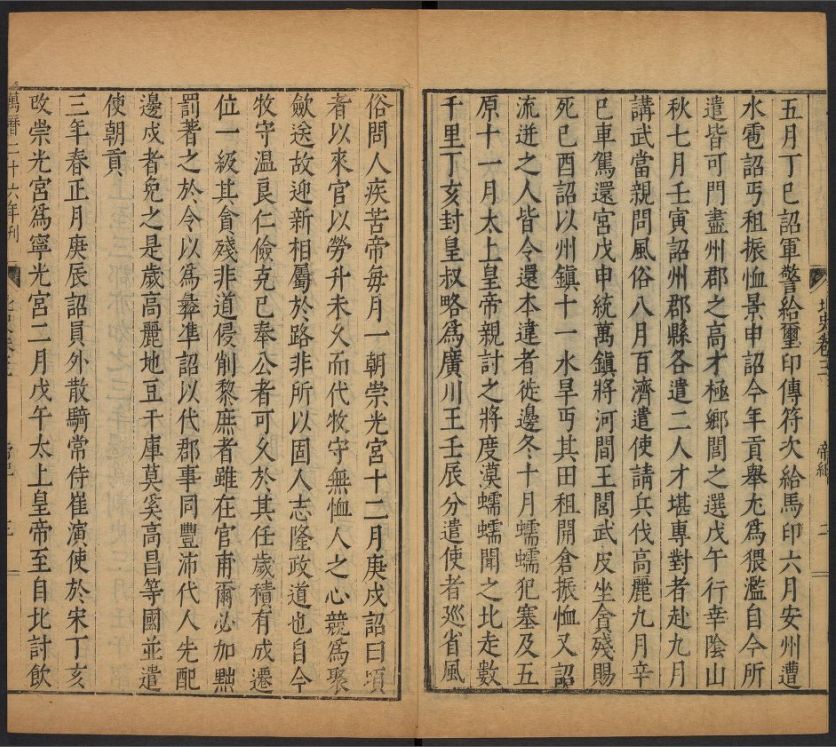 五月丁巳詔軍警給璽印傳符次給馬印六月安州遭
水雹詔丐租振恤景申詔今年貢舉尤為猥濫自今所
遣皆可門盡州郡之高才極鄉閭之選戊午行幸陰山
秋七月壬寅詔州郡縣各遣二人才堪專對者赴九月
講武當親問風俗八月百濟遣使請兵伐高麗九月辛
巳車駕還宮戊申統萬鎮將河間王閭武皮坐貪殘賜
死己酉詔以州鎮十一水旱丐其田租開倉振恤又詔
流迸之人皆令還本違者徙邊冬十月蠕蠕犯塞及五
原十一月太上皇帝親討之將度漠蠕蠕聞之北走數
千里丁亥封皇叔略為廣川王壬辰分遣使者巡省風
俗問人疾苦帝每月一朝崇光宮十二月庚戌詔曰頃
者以來官以勞升未久而代牧守無恤人之心競為聚
歛送故迎新相屬於路非所以固人志隆政道也自今
牧守温良仁儉克己奉公者可久於其任歲積有成遷
位一級其貪殘非道侵削黎庶者雖在官甫爾必加黜
罰著之於令以為彜準詔以代郡事同豐沛代人先配
邊戍者免之是歲高麗地豆干庫莫奚高昌等國並遣
使朝貢
三年春正月庚辰詔員外散騎常侍崔演使於宋丁亥
改崇光宮為寧光宮二月戊午太上皇帝至自北討飲
萬曆二十六年刊